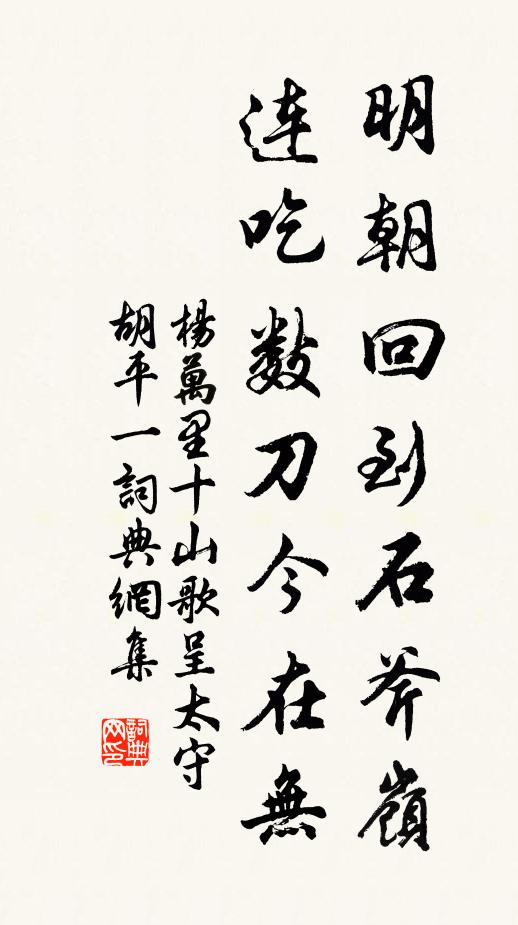 明朝回到石斧嶺
連吃數刀今在無
楊萬里十山歌呈太守
胡平一詞典網集
詞典網印